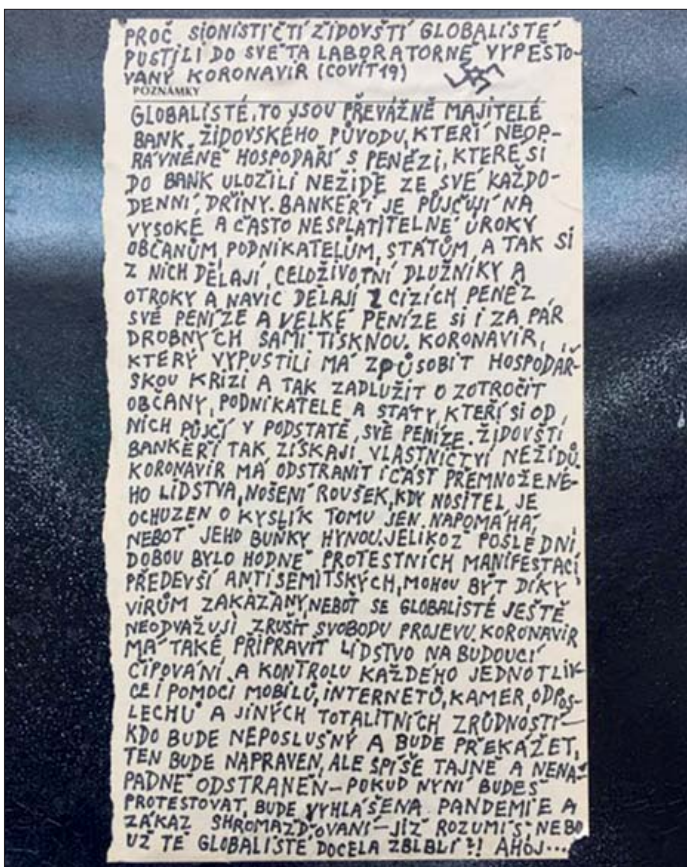 PROČ SIONISTIČTÍ ŽIDOVŠTÍ GLOBALISTÉ
PUSTILI DO SVĚTA LABORATORNĚ VYPĚSTO-
VANÝ KORONAVIR (COVIT19)
POZNÁMKY
GLOBALISTÉ, TO JSOU PŘEVÁŽNĚ MAJITELÉ
BANK ŽIDOVSKÉHO PŮVODU, KTEŘÍ NEOP-
RÁVNĚNĚ HOSPODAŘÍ S PENĚZI, KTERÉ SI
DO BANK ULOŽILI NEŽIDÉ ZE SVÉ KAŽDO-
DENNÍ DŘINY. BANKÉŘI JE PŮJČUJÍ NA
VYSOKÉ A ČASTO NESPLATITELNÉ ÚROKY
OBČANŮM, PODNIKATELŮM, STÁTŮM, A TAK SI
Z NICH DĚLAJÍ, CELOŽIVOTNÍ DLUŽNÍKY A
OTROKY A NAVÍC DĚLAJÍ Z CIZÍCH PENĚZ
SVÉ PENÍZE A VELKÉ PENÍZE SI I ZA PÁR
DROBNÝCH SAMI TISKNOU. KORONAVIR,
KTERÝ VYPUSTILI MÁ ZPŮSOBIT HOSPODÁŘ-
SKOU KRIZI A TAK ZADLUŽIT O ZOTROČIT
OBČANY, PODNIKATELE A STÁTY, KTEŘÍ SI OD
NICH PŮJČÍ V PODSTATĚ, SVÉ PENÍZE. ŽIDOVŠTÍ
BANKÉŘI TAK ZÍSKAJÍ VLASTNICTVÍ NEŽIDŮ.
KORONAVIR MÁ ODSTRANIT I ČÁST PŘEMNOŽENÉ-
HO LIDSTVA, NOŠENÍ ROUŠEK, KDY NOSITEL JE
OCHUZEN O KYSLÍK TOMU JEN NAPOMÁHÁ,
NEBOŤ JEHO BUŇKY HYNOU. JELIKOŽ POSLEDNÍ
DOBOU BYLO HODNĚ PROTESTNÍCH MANIFESTACÍ
PŘEDEVŠÍ ANTISEMITSKÝCH, MOHOU BÝT DÍKY
VIRŮM ZAKÁZÁNY, NEBOŤ SE GLOBALISTÉ JEŠTĚ
NEODVAŽUJÍ ZRUŠIT SVOBODU PROJEVU. KORONAVIR
MÁ TAKÉ PŘIPRAVIT LIDSTVO NA BUDOUCÍ
ČIPOVÁNÍ A KONTROLU KAŽDÉHO JEDNOTLIV-
CE I POMOCÍ MOBILŮ, INTERNETŮ, KAMER, ODPOS-
LECHŮ A JINÝCH TOTALITNÍCH ZRŮDNOSTÍ—
KDO BUDE NEPOSLUŠNÝ A BUDE PŘEKÁŽET,
TEN BUDE NAPRAVEN, ALE SPÍŠE TAJNĚ A NENÁ-
PADNĚ ODSTRANĚN – POKUD NYNÍ BUDEŠ
PROTESTOVAT, BUDE VYHLÁŠENA PANDEMIE A
ZÁKAZ SHROMAŽĎOVÁNÍ – JIŽ ROZUMÍŠ, NEBO
UŽ TĚ GLOBALISTÉ DOCELA ZBLBLI?! AHOJ...